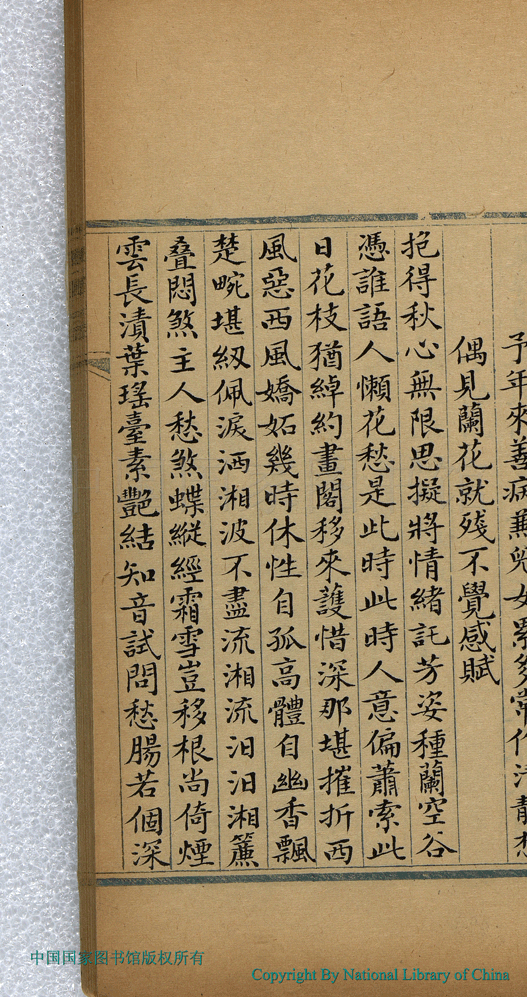 予年來善病兼
偶見蘭花就殘不覺感賦
抱得秋心無限思擬將情緒託芳姿種蘭空谷
憑誰語人懶花愁是此時此時人意偏蕭索此
日花枝猶綽約畫閣移來護惜深那堪摧折西
風惡西風嬌妬幾時休性自孤高體自幽香飄
楚畹堪紉佩淚洒湘波不盡流湘流汩汩湘簾
疊悶煞主人愁煞蝶縱經霜雪豈移根尚倚煙
雲長漬葉瑤臺素艷結知音試問愁腸若個深
中国国家图书馆版权所有
Copyright By National Library of China